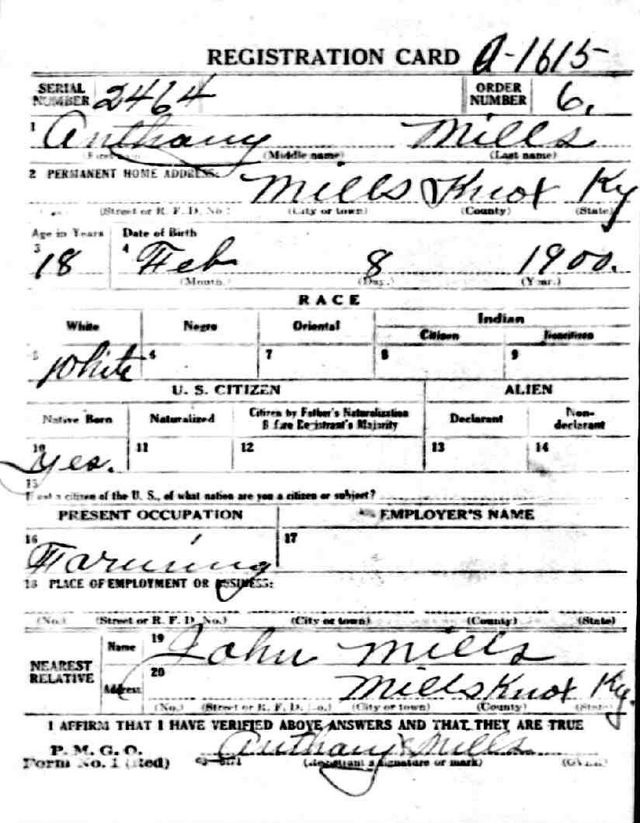 REGISTRATION CARD A-1615
SERIAL NUMBER 2464 ORDER NUMBER 6.
1 Anthany Mills
(Middle name) (Last name)
2 PERMANENT HOME ADDRESS: Mills Knox Ky
(Street or R. F. D. No.) (City or town) (County) (State)
Age in Years Date of Birth
3 18 4 Feb 8 1900.
(Month.) (Day.) (Year.)
RACE
White Negro Oriental Indian
Citizen Noncitizen
5 White 6 7 8 9
U. S. CITIZEN ALIEN
Native Born Naturalized Citizen by Father's Naturalization Before Registrant's Majority Declarant Non-declarant
10 Yes. 11 12 13 14
15
If not a citizen of the U. S., of what nation are you a citizen or subject?
PRESENT OCCUPATION EMPLOYER'S NAME
16 Farming 17
18 PLACE OF EMPLOYMENT OR BUSINESS:
(No.) (Street or R. F. D. No.) (City or town) (County) (State)
NEAREST RELATIVE Name 19 John Mills
Address 20 Mills Knox Ky.
(No.) (Street or R. F. D. No.) (City or town) (County) (State)
I AFFIRM THAT I HAVE VERIFIED ABOVE ANSWERS AND THAT THEY ARE TRUE
P. M. G. O.
Form No. 1 (Red) Anthany Mills
(Registrant's signature or mark) (OVER)